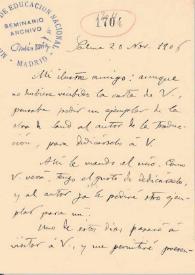 DE EDUCACIÓN NACIONAL
SEMINARIO
ARCHIVO
MADRID
Palma 20 Nov. 1906
Mi ilustre amigo: aunque
no hubiese recibido la carta de V.,
pensaba pedir un ejemplar de la
obra de al autor de la traduc-
ción, para dedicárselo á V.
Allí le mando el mío. Como
V. verá, tengo el gusto de dedicárselo,
y al autor ya le pediré otro ejem-
plar para mí.
Uno de estos días pasaré á
visitar á V. y me permitiré